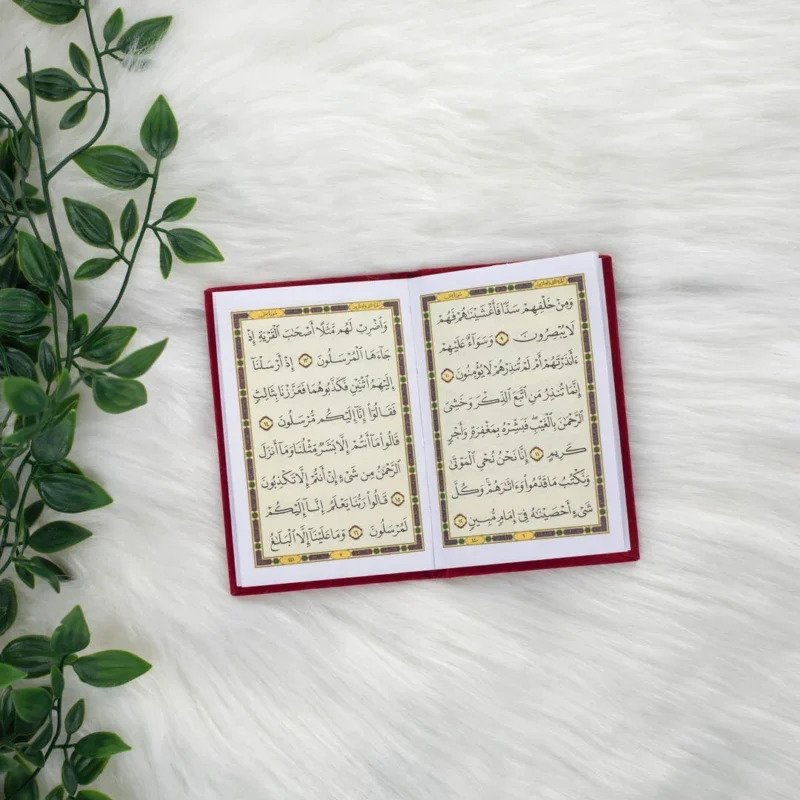 وَمِنْ خَلْفِهِمْ سَدًّا فَأَغْشَيْنَٰهُمْ فَهُمْ
لَا يُبْصِرُونَ ٩ وَسَوَآءٌ عَلَيْهِمْ
ءَأَنذَرْتَهُمْ أَمْ لَمْ تُنذِرْهُمْ لَا يُؤْمِنُونَ ١٠
إِنَّمَا تُنذِرُ مَنِ ٱتَّبَعَ ٱلذِّكْرَ وَخَشِىَ
ٱلرَّحْمَٰنَ بِٱلْغَيْبِ ۖ فَبَشِّرْهُ بِمَغْفِرَةٍ وَأَجْرٍ
كَرِيمٍ ١١ إِنَّا نَحْنُ نُحْىِ ٱلْمَوْتَىٰ
وَنَكْتُبُ مَا قَدَّمُوا۟ وَءَاثَٰرَهُمْ ۚ وَكُلَّ
شَىْءٍ أَحْصَيْنَٰهُ فِىٓ إِمَامٍ مُّبِينٍ ١٢
٦
٤٤٠
وَٱضْرِبْ لَهُم مَّثَلًا أَصْحَٰبَ ٱلْقَرْيَةِ إِذْ
جَآءَهَا ٱلْمُرْسَلُونَ ١٣ إِذْ أَرْسَلْنَآ
إِلَيْهِمُ ٱثْنَيْنِ فَكَذَّبُوهُمَا فَعَزَّزْنَا بِثَالِثٍ
فَقَالُوٓا۟ إِنَّآ إِلَيْكُم مُّرْسَلُونَ ١٤
قَالُوا۟ مَآ أَنتُمْ إِلَّا بَشَرٌ مِّثْلُنَا وَمَآ أَنزَلَ
ٱلرَّحْمَٰنُ مِن شَىْءٍ إِنْ أَنتُمْ إِلَّا تَكْذِبُونَ
١٥ قَالُوا۟ رَبُّنَا يَعْلَمُ إِنَّآ إِلَيْكُمْ
لَمُرْسَلُونَ ١٦ وَمَا عَلَيْنَآ إِلَّا ٱلْبَلَٰغُ
٧
٤٤١